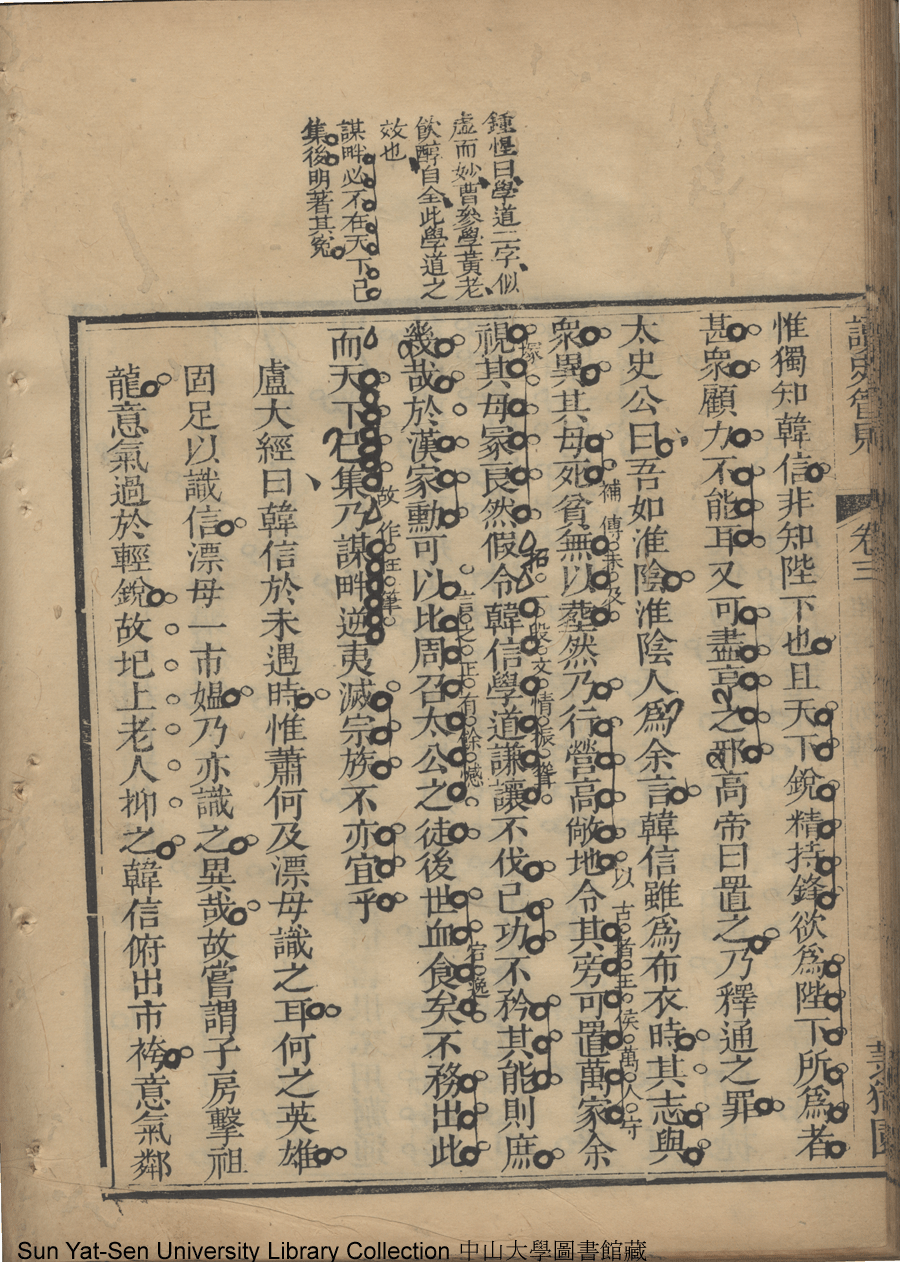 鍾惺曰學道二字似
虛而妙曹參學黃老
飲醇自全此學道之
效也
謀畔必不在天下已
集後明著其冤
卷三
惟獨知韓信非知陛下也且天下銳精持鋒欲為陛下所為者
甚衆顧力不能耳又可盡亨之邪高帝曰置之乃釋通之罪
太史公曰吾如淮陰淮陰人爲余言韓信雖爲布衣時其志與
衆異其母死貧無以葬然乃行營高敞地令其旁可置萬家余
補傳未及
以古者王侯萬人守
塚
視其母冢良然假令韓信學道謙讓不伐己功不矜其能則庶
拓一段文情振聳
幾哉於漢家勳可以比周召太公之徒後世血食矣不務出此
言之正有餘憾
宕逸
而天下已集乃謀畔逆夷滅宗族不亦宜乎
故作狂筆
盧大經曰韓信於未遇時惟蕭何及漂母識之耳何之英雄
固足以識信漂母一市媼乃亦識之異哉故嘗謂子房擊祖
龍意氣過於輕銳故圯上老人抑之韓信俯出市袴意氣鄰
Sun Yat-Sen University Library Collection 中山大學圖書館藏